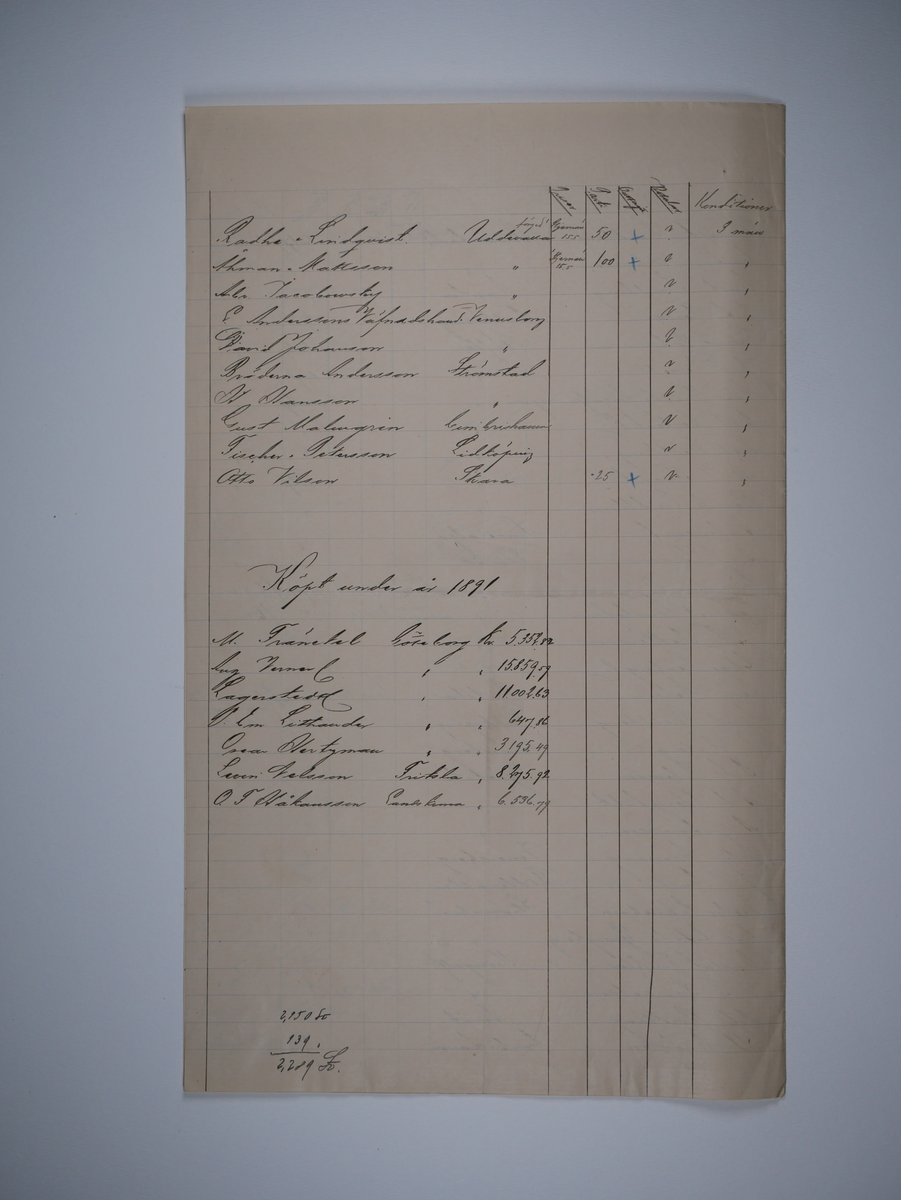 Konditioner
Radhe & Lindqvist. Uddevalla 50 + v 3 mån
Åhman & Mattsson " 100 + v "
Abr. Jacobowsky " v "
C. Anderssons Väfnadshand. Venersborg v "
David Johanson " v "
Bröderna Andersson Strömstad v "
Hansson " v "
Gust Malmgren Cimbrishamn v "
Fischer & Petersson Lidköping v "
Otto Nilson Skara 25 + v "
Köpt under år 1891
M. Fränckel Göteborg Kr. 5.359.82
Aug. " " 15.859.59
Lagerstedt " " 11002.63
Em Lithander " " 647.86
Oscar Hertzman " " 3195.49
Sven Nelsson Fritsla " 8.275.92
O F Håkansson " 6.536.79
2,150 Do
139 "
2,289 Do.